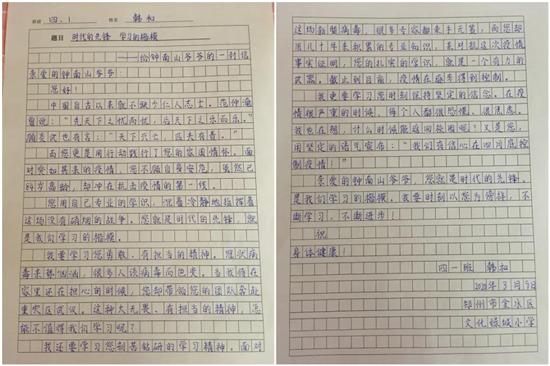 班级 四.1 姓名 韩和
题目 时代的先锋 学习的楷模
——给钟南山爷爷的一封信
亲爱的钟南山爷爷：
您好！
中国自古以来就不缺少仁人志士。范仲淹
曾说：“先天下之忧而忧，后天下之乐而乐。”
顾炎武也有言：“天下兴亡，匹夫有责。”
而您更是用行动践行了您的家国情怀。面
对突如其来的疫情，您不顾自身安危，虽然已
的高龄，却冲在抗击疫情的第一线。
您用自己专业的学识，沉着冷静地指挥着
这场没有硝烟的战争。您就是时代的先锋，就
是我们学习的楷模。
我要学习您勇敢、有担当的精神。冠状病
毒来势汹汹，很多人谈病毒而色变。当我们在
家里还在担心的时候，您却带领您的团队奔赴
重灾区武汉。这种大无畏、有担当的精神，怎
能不值得我们学习呢？
我还要学习您刻苦钻研的学习精神。面对
这场新型病毒，很多专家都束手无策，而您却
用几十年来积累的专业知识，来对抗这次疫情
事实证明，您的扎实的学识，就是一个有力的
武器。截止到目前，疫情在逐步得到控制。
我更要学习您时刻保持坚定的信念。在疫
情很严重的时候，每个人都很恐惧、很焦虑。
我也在想，什么时候能返回校园呢？又是您，
用坚定的语气宣告：“我们有信心在四月底控
制疫情！”
亲爱的钟南山爷爷，您就是时代的先锋。
是我们学习的楷模。我要时刻以您为榜样，不
断学习，不断进步！
祝
身体健康！
四一班 韩和
2020年3月9日
郑州市金水区
文化绿城小学